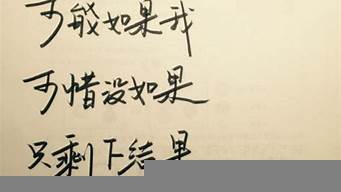 可能如果我
可惜没如果
只剩下结果